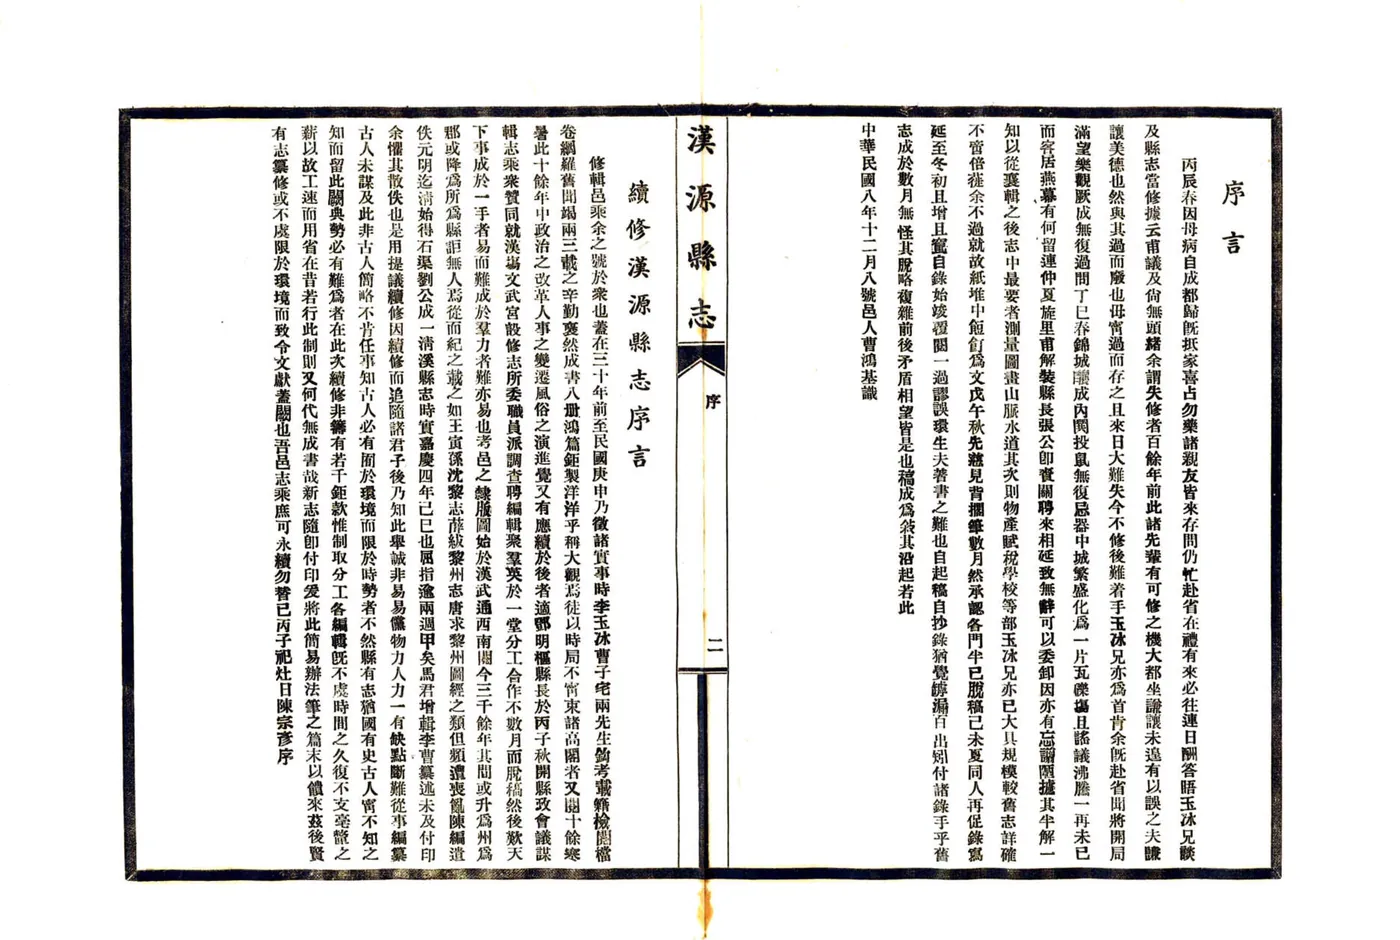 序言
丙辰春因母病自成都歸旣抵家喜占勿藥諸親友皆來存問仍忙赴省在禮有來必往連日酬答晤玉冰兄談
及縣志當修據云甫議及尙無頭緖余謂失修者百餘年前此諸先輩有可修之機大都坐謙讓未遑有以誤之夫謙
讓美德也然與其過而廢也毋寧過而存之且來日大難失今不修後難着手玉冰兄亦爲首肯余旣赴省聞將開局
滿望樂觀厥成無復過問丁巳春錦城釀成內鬨投鼠無復忌器中城繁盛化爲一片瓦礫塲且謠議沸騰一再未已
而客居燕幕有何留連仲夏旋里甫解裝縣長張公卽賫關聘來相延致無辭可以委卸因亦有忘譾陋據其半解一
知以從襄輯之後志中最要者測量圖畫山脈水道其次則物產賦稅學校等部玉冰兄亦已大具規模較舊志詳確
不啻倍蓰余不過就故紙堆中飣飣爲文戊午秋先慈見背擱筆數月然承認各門半已脫稿己未夏同人再促錄寫
延至冬初且增且竄自錄始竣覆閱一過謬誤環生夫著書之難也自起稿自抄錄猶覺罅漏百出矧付諸錄手乎舊
志成於數月無怪其脫略複雜前後矛盾相望皆是也稿成爲叙其沿起若此
中華民國八年十二月八號邑人曹鴻基識
漢源縣志
序
二
續修漢源縣志序言
修輯邑乘余之號於衆也蓋在三十年前至民國庚申乃徵諸實事時李玉冰曹子宅兩先生鉤考載籍檢閱檔
卷網羅舊聞竭兩三載之辛勤裒然成書八册鴻篇鉅製洋洋乎稱大觀焉徒以時局不寧束諸高閣者又閱十餘寒
暑此十餘年中政治之改革人事之變遷風俗之演進覺又有應續於後者適鄧明樞縣長於丙子秋開縣政會議謀
輯志乘衆贊同就漢塲文武宮設修志所委職員派調查聘編輯聚羣英於一堂分工合作不數月而脫稿然後歎天
下事成於一手者易而難成於羣力者難亦易也考邑之隸版圖始於漢武通西南閱今三千餘年其間或升爲州爲
郡或降爲所爲縣詎無人焉從而紀之載之如王寅孫沈黎志薛紱黎州志唐求黎州圖經之類但類遭喪亂陳編遺
佚元明迄淸始得石渠劉公成一淸溪縣志時實嘉慶四年己巳也屈指逾兩週甲矣馬君增輯李曹纂述未及付印
余懼其散佚也是用提議續修因續修而追隨諸君子後乃知此舉誠非易易儻物力人力一有缺點斷難從事編纂
古人未謀及此非古人簡略不肯任事知古人必有囿於環境而限於時勢者不然縣有志猶國有史古人寧不知之
知而留此闕典勢必有難爲者在此次續修非籌有若千鉅款惟制取分工各編輯旣不虔時間之久復不支毫釐之
薪以故工速而用省在昔若行此制則又何代無成書哉新志隨卽付印爰將此簡易辦法筆之篇末以償來茲後賢
有志纂修或不虔限於環境而致令文獻蓋闕也吾邑志乘庶可永續勿替已丙子祀灶日陳宗彥序